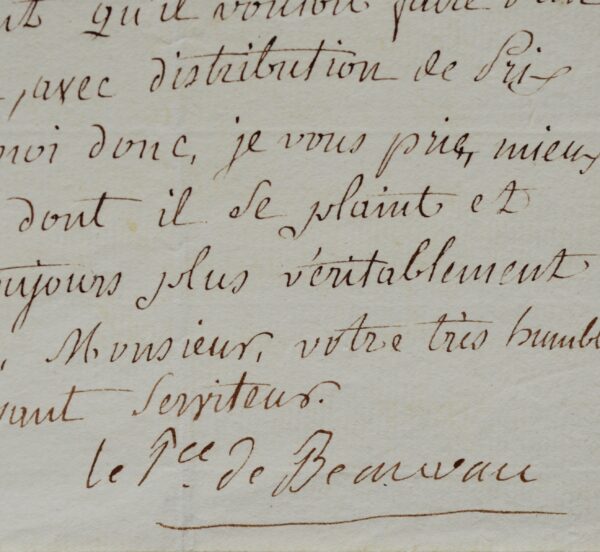 nt qu'il vouloit faire d'un
, avec distribution de Prix
moi donc, je vous prie, mieux
dont il se plaint et
oujours plus véritablement
, Monsieur, votre très humbl
vant Serviteur.
le Pce de Beauvau